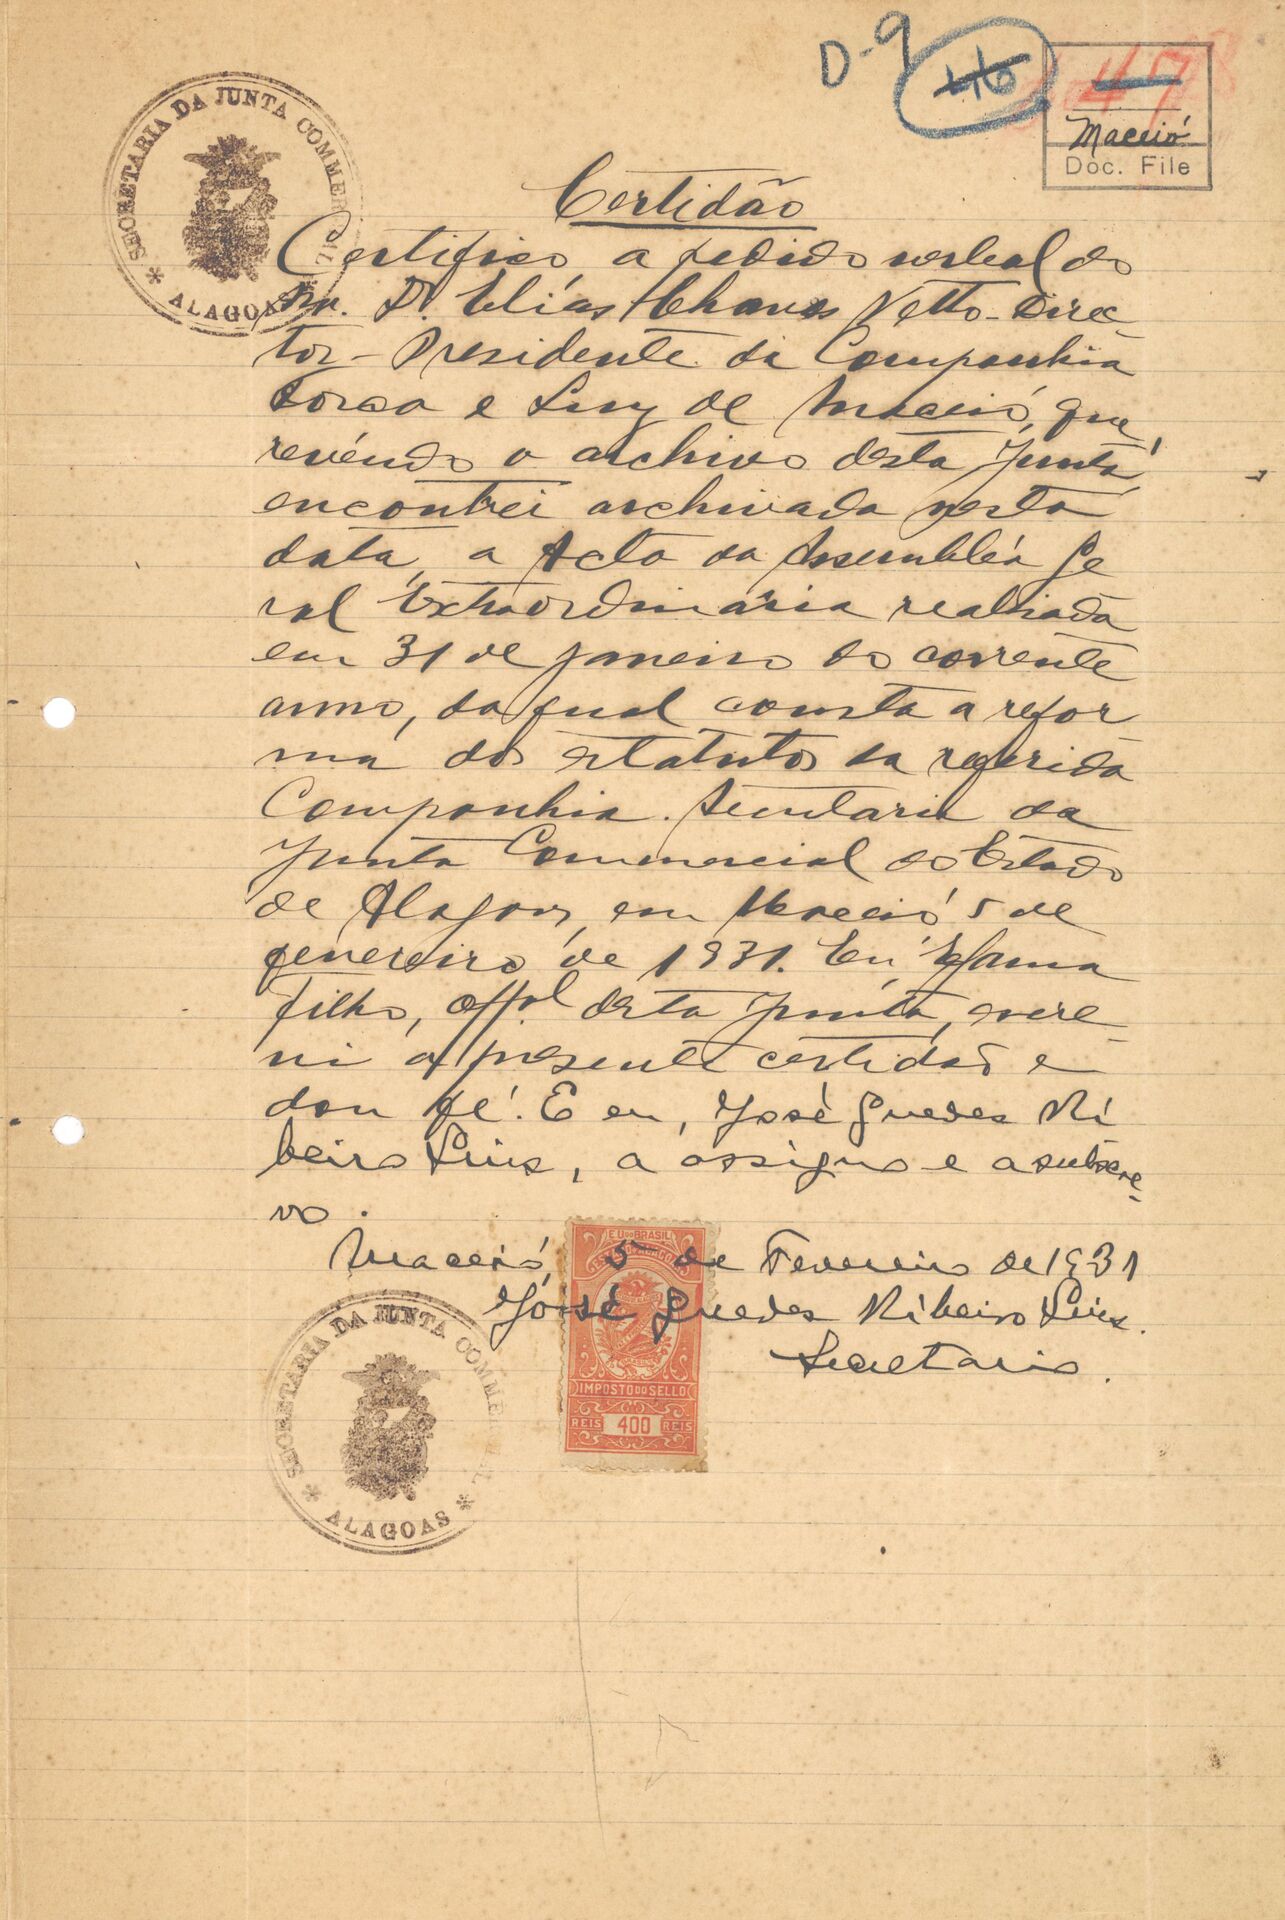 D-9
46
47
Maceió
Doc. File
SECRETARIA DA JUNTA COMMERCIAL
* ALAGOAS *
Certidão
Certifico a pedido verbal do
Snr. Dr. Elias Chaves Netto-Direc-
tor-Presidente da Companhia
Força e Luz de Maceió, que,
revendo o archivo desta Junta,
encontrei archivada nesta
data, a Acta da Assembléa Ge
ral Extraordinária realisada
em 31 de Janeiro do corrente
anno, da qual consta a refor
ma dos estatutos da referida
Companhia. Secretaria da
Junta Commercial do Estado
de Alagoas, em Maceió 5 de
fevereiro de 1931. Eu, Gama
filho, offal desta Junta, escre-
vi a presente certidão e
dou fé. E eu, José Guedes Ri
beiro Lins, a assigno e a subscre-
vo.
Maceió, 5 de Fevereiro de 1931
José Guedes Ribeiro Lins.
Secretario.
E.U. DO BRASIL
ESTADO DE ALAGOAS
IMPOSTO DO SELLO
REIS 400 REIS
SECRETARIA DA JUNTA COMMERCIAL
* ALAGOAS *